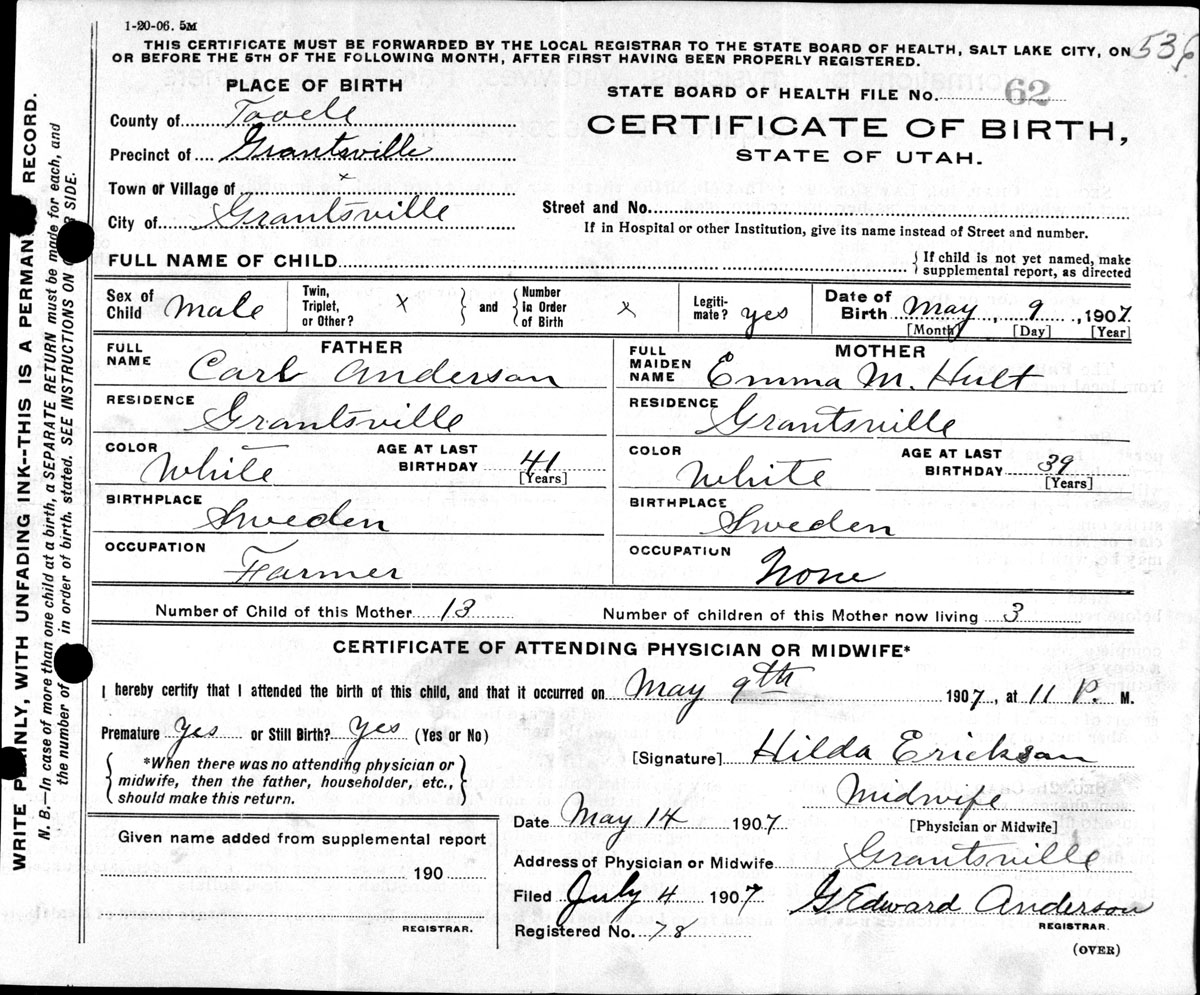 1-20-06. 5M
THIS CERTIFICATE MUST BE FORWARDED BY THE LOCAL REGISTRAR TO THE STATE BOARD OF HEALTH, SALT LAKE CITY, ON
OR BEFORE THE 5TH OF THE FOLLOWING MONTH, AFTER FIRST HAVING BEEN PROPERLY REGISTERED.
536
PLACE OF BIRTH
STATE BOARD OF HEALTH FILE NO. 62
County of Tooele
CERTIFICATE OF BIRTH,
Precinct of Grantsville
STATE OF UTAH.
Town or Village of x
City of Grantsville
Street and No.
If in Hospital or other Institution, give its name instead of Street and number.
FULL NAME OF CHILD
{ If child is not yet named, make
supplemental report, as directed
Sex of Child Male
Twin, Triplet, or Other? x } and { Number In Order of Birth x
Legiti-mate? yes
Date of Birth May, 9, 1907
[Month] [Day] [Year]
FATHER
FULL NAME Carl Anderson
MOTHER
FULL MAIDEN NAME Emma M. Hult
RESIDENCE Grantsville
RESIDENCE Grantsville
COLOR White AGE AT LAST BIRTHDAY 41 [Years]
COLOR White AGE AT LAST BIRTHDAY 39 [Years]
BIRTHPLACE Sweden
BIRTHPLACE Sweden
OCCUPATION Farmer
OCCUPATION None
Number of Child of this Mother 13 Number of children of this Mother now living 3
CERTIFICATE OF ATTENDING PHYSICIAN OR MIDWIFE*
I hereby certify that I attended the birth of this child, and that it occurred on May 9th 1907, at 11 P. M.
Premature Yes or Still Birth? Yes (Yes or No)
{ *When there was no attending physician or }
midwife, then the father, householder, etc.,
should make this return.
[Signature] Hilda Erickson
Midwife
[Physician or Midwife]
Given name added from supplemental report
190
REGISTRAR.
Date May 14 1907
Address of Physician or Midwife Grantsville
Filed July 4 1907 G. Edward Anderson
REGISTRAR.
Registered No. 78
(OVER)
WRITE PLAINLY, WITH UNFADING INK--THIS IS A RECORD.
N. B.—In case of more than one child at a birth, a SEPARATE RETURN must be made for each, and
the number of in order of birth, stated. SEE INSTRUCTIONS ON SIDE.